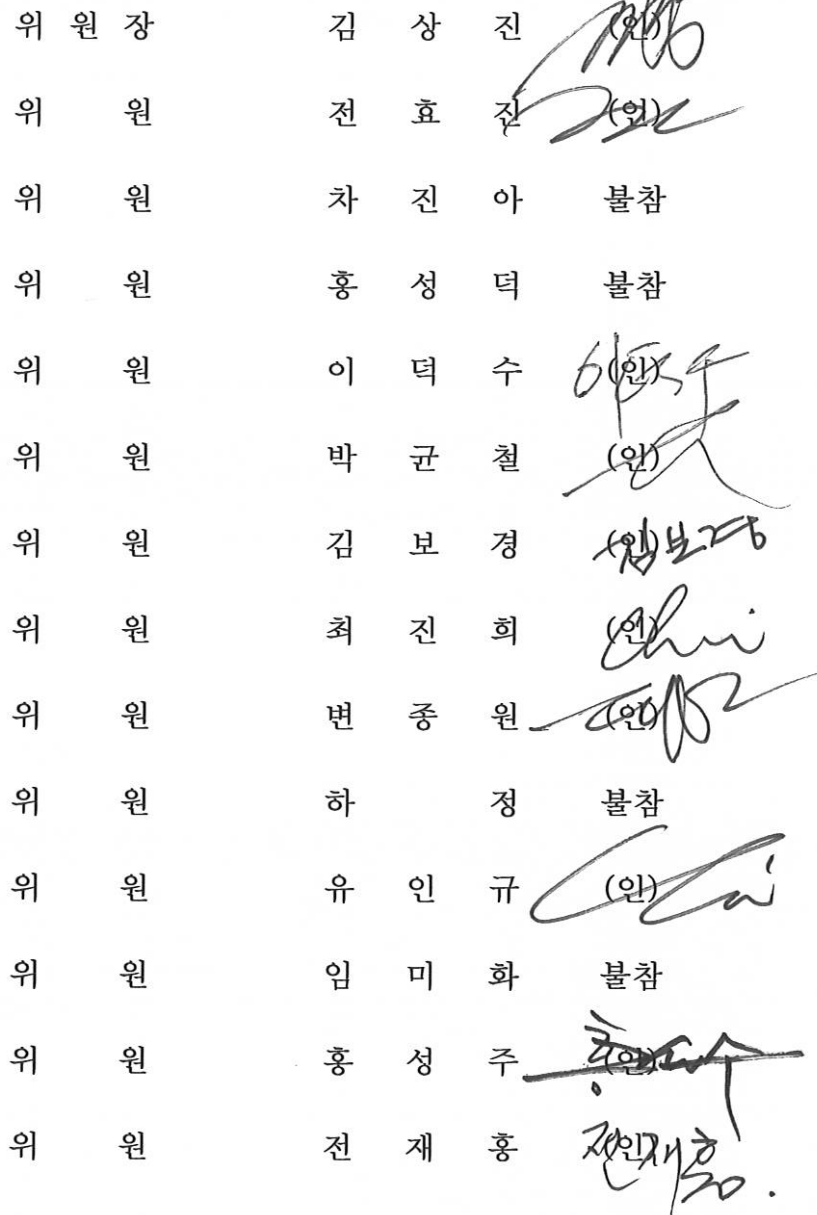 위 원 장 김 상 진 (인)
위 원 전 효 진 (인)
위 원 차 진 아 불참
위 원 홍 성 덕 불참
위 원 이 덕 수 (인)
위 원 박 균 철 (인)
위 원 김 보 경 (인)
위 원 최 진 희 (인)
위 원 변 종 원 (인)
위 원 하 정 불참
위 원 유 인 규 (인)
위 원 임 미 화 불참
위 원 홍 성 주 (인)
위 원 전 재 홍 (인)